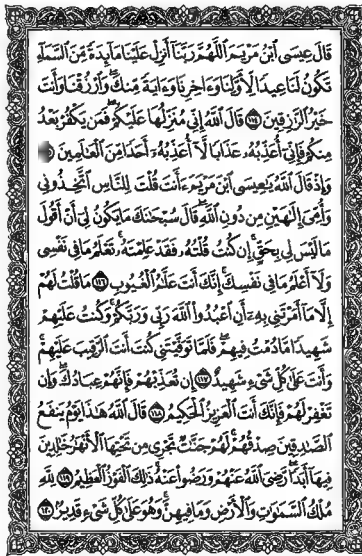 قَالَ عِيسَى ٱبْنُ مَرْيَمَ ٱللَّهُمَّ رَبَّنَآ أَنزِلْ عَلَيْنَا مَآئِدَةً مِّنَ ٱلسَّمَآءِ
تَكُونُ لَنَا عِيدًا لِّأَوَّلِنَا وَءَاخِرِنَا وَءَايَةً مِّنكَ ۖ وَٱرْزُقْنَا وَأَنتَ
خَيْرُ ٱلرَّٰزِقِينَ ١١٤ قَالَ ٱللَّهُ إِنِّى مُنَزِّلُهَا عَلَيْكُمْ ۖ فَمَن يَكْفُرْ بَعْدُ
مِنكُمْ فَإِنِّىٓ أُعَذِّبُهُۥ عَذَابًا لَّآ أُعَذِّبُهُۥٓ أَحَدًا مِّنَ ٱلْعَٰلَمِينَ
وَإِذْ قَالَ ٱللَّهُ يَٰعِيسَى ٱبْنَ مَرْيَمَ ءَأَنتَ قُلْتَ لِلنَّاسِ ٱتَّخِذُونِى
وَأُمِّىَ إِلَٰهَيْنِ مِن دُونِ ٱللَّهِ ۖ قَالَ سُبْحَٰنَكَ مَا يَكُونُ لِىٓ أَنْ أَقُولَ
مَا لَيْسَ لِى بِحَقٍّ ۚ إِن كُنتُ قُلْتُهُۥ فَقَدْ عَلِمْتَهُۥ ۚ تَعْلَمُ مَا فِى نَفْسِى
وَلَآ أَعْلَمُ مَا فِى نَفْسِكَ ۚ إِنَّكَ أَنتَ عَلَّٰمُ ٱلْغُيُوبِ ١١٦ مَا قُلْتُ لَهُمْ
إِلَّا مَآ أَمَرْتَنِى بِهِۦٓ أَنِ ٱعْبُدُوا۟ ٱللَّهَ رَبِّى وَرَبَّكُمْ ۚ وَكُنتُ عَلَيْهِمْ
شَهِيدًا مَّا دُمْتُ فِيهِمْ ۖ فَلَمَّا تَوَفَّيْتَنِى كُنتَ أَنتَ ٱلرَّقِيبَ عَلَيْهِمْ ۚ
وَأَنتَ عَلَىٰ كُلِّ شَىْءٍ شَهِيدٌ ١١٧ إِن تُعَذِّبْهُمْ فَإِنَّهُمْ عِبَادُكَ ۖ وَإِن
تَغْفِرْ لَهُمْ فَإِنَّكَ أَنتَ ٱلْعَزِيزُ ٱلْحَكِيمُ ١١٨ قَالَ ٱللَّهُ هَٰذَا يَوْمُ يَنفَعُ
ٱلصَّٰدِقِينَ صِدْقُهُمْ ۚ لَهُمْ جَنَّٰتٌ تَجْرِى مِن تَحْتِهَا ٱلْأَنْهَٰرُ خَٰلِدِينَ
فِيهَآ أَبَدًا ۚ رَّضِىَ ٱللَّهُ عَنْهُمْ وَرَضُوا۟ عَنْهُ ۚ ذَٰلِكَ ٱلْفَوْزُ ٱلْعَظِيمُ ١١٩ لِلَّهِ
مُلْكُ ٱلسَّمَٰوَٰتِ وَٱلْأَرْضِ وَمَا فِيهِنَّ ۚ وَهُوَ عَلَىٰ كُلِّ شَىْءٍ قَدِيرٌۢ ١٢٠